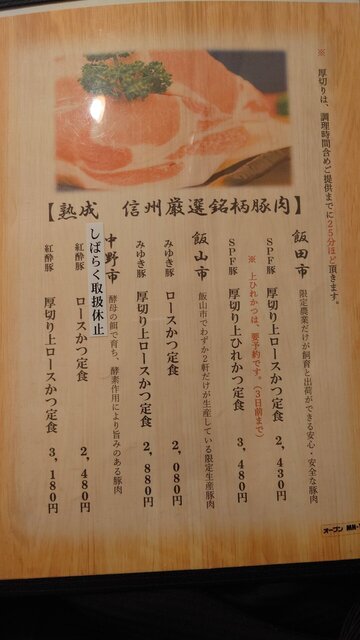 ※ 厚切りは、調理時間含めご提供までに25分ほど頂きます。
【熟成 信州厳選銘柄豚肉】
飯田市 限定農業だけが飼育と出荷ができる安心・安全な豚肉
SPF豚 厚切り上ロースかつ定食 2,430円
※ 上ひれかつは、要予約です。(3日前まで)
SPF豚 厚切り上ひれかつ定食 3,480円
飯山市 飯山市でわずか2軒だけが生産している限定生産豚肉
みゆき豚 ロースかつ定食 2,080円
みゆき豚 厚切り上ロースかつ定食 2,880円
中野市 酵母の餌で育ち、酵素作用により旨みのある豚肉
しばらく取扱休止
紅酔豚 ロースかつ定食 2,480円
紅酔豚 厚切り上ロースかつ定食 3,180円
オープン